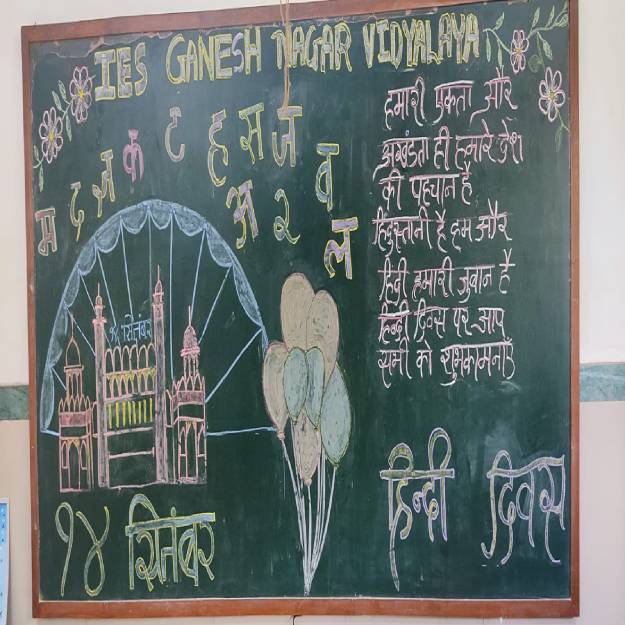 IES GANESH NAGAR VIDYALAYA
म द क ट ह स ज व
अ २ ल
हमारी एकता और
अखंडता ही हमारे देश
की पहचान है
हिंदुस्तानी है हम और
हिंदी हमारी जुबान है
हिन्दी दिवस पर आप
सभी को शुभकामनाएँ
१४ सितंबर
१४ सितंबर
हिन्दी दिवस